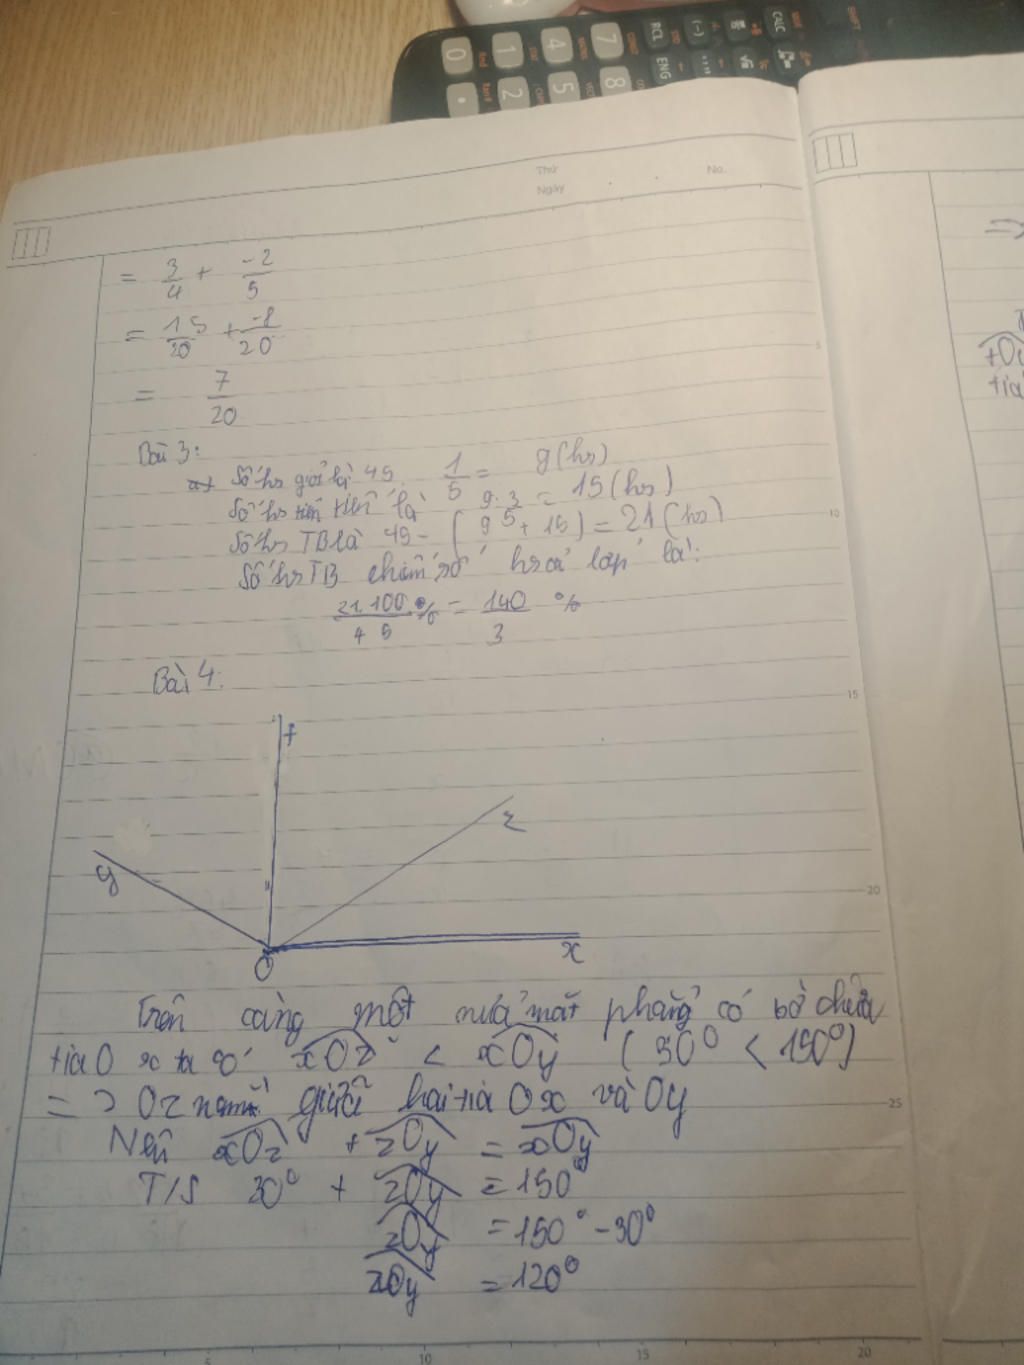 0 1 4 7 RCL (-) CALC SHIFT
. 2 5 8 ENG
Thứ
Ngày
No.
= 3/4 + -2/5
= 15/20 + -8/20
= 7/20
Bài 3:
Số hs giỏi là 45. 1/5 = 9 (hs)
Số hs tiên tiến là 9. 5/3 = 15 (hs)
Số hs TB là 45 - (9 + 15) = 21 (hs)
Số hs TB chiếm số hs cả lớp là:
21.100/45 % = 140/3 %
Bài 4:
t
z
y
O
x
Trên cùng một nửa mặt phẳng có bờ chứa
tia Ox ta có xOz < xOy (30° < 150°)
=> Oz nằm giữa hai tia Ox và Oy
Nên xOz + zOy = xOy
T/S 30° + zOy = 150°
zOy = 150° - 30°
zOy = 120°
5
10
15
20
25
5 10 15 20
=>
+Oy
tia